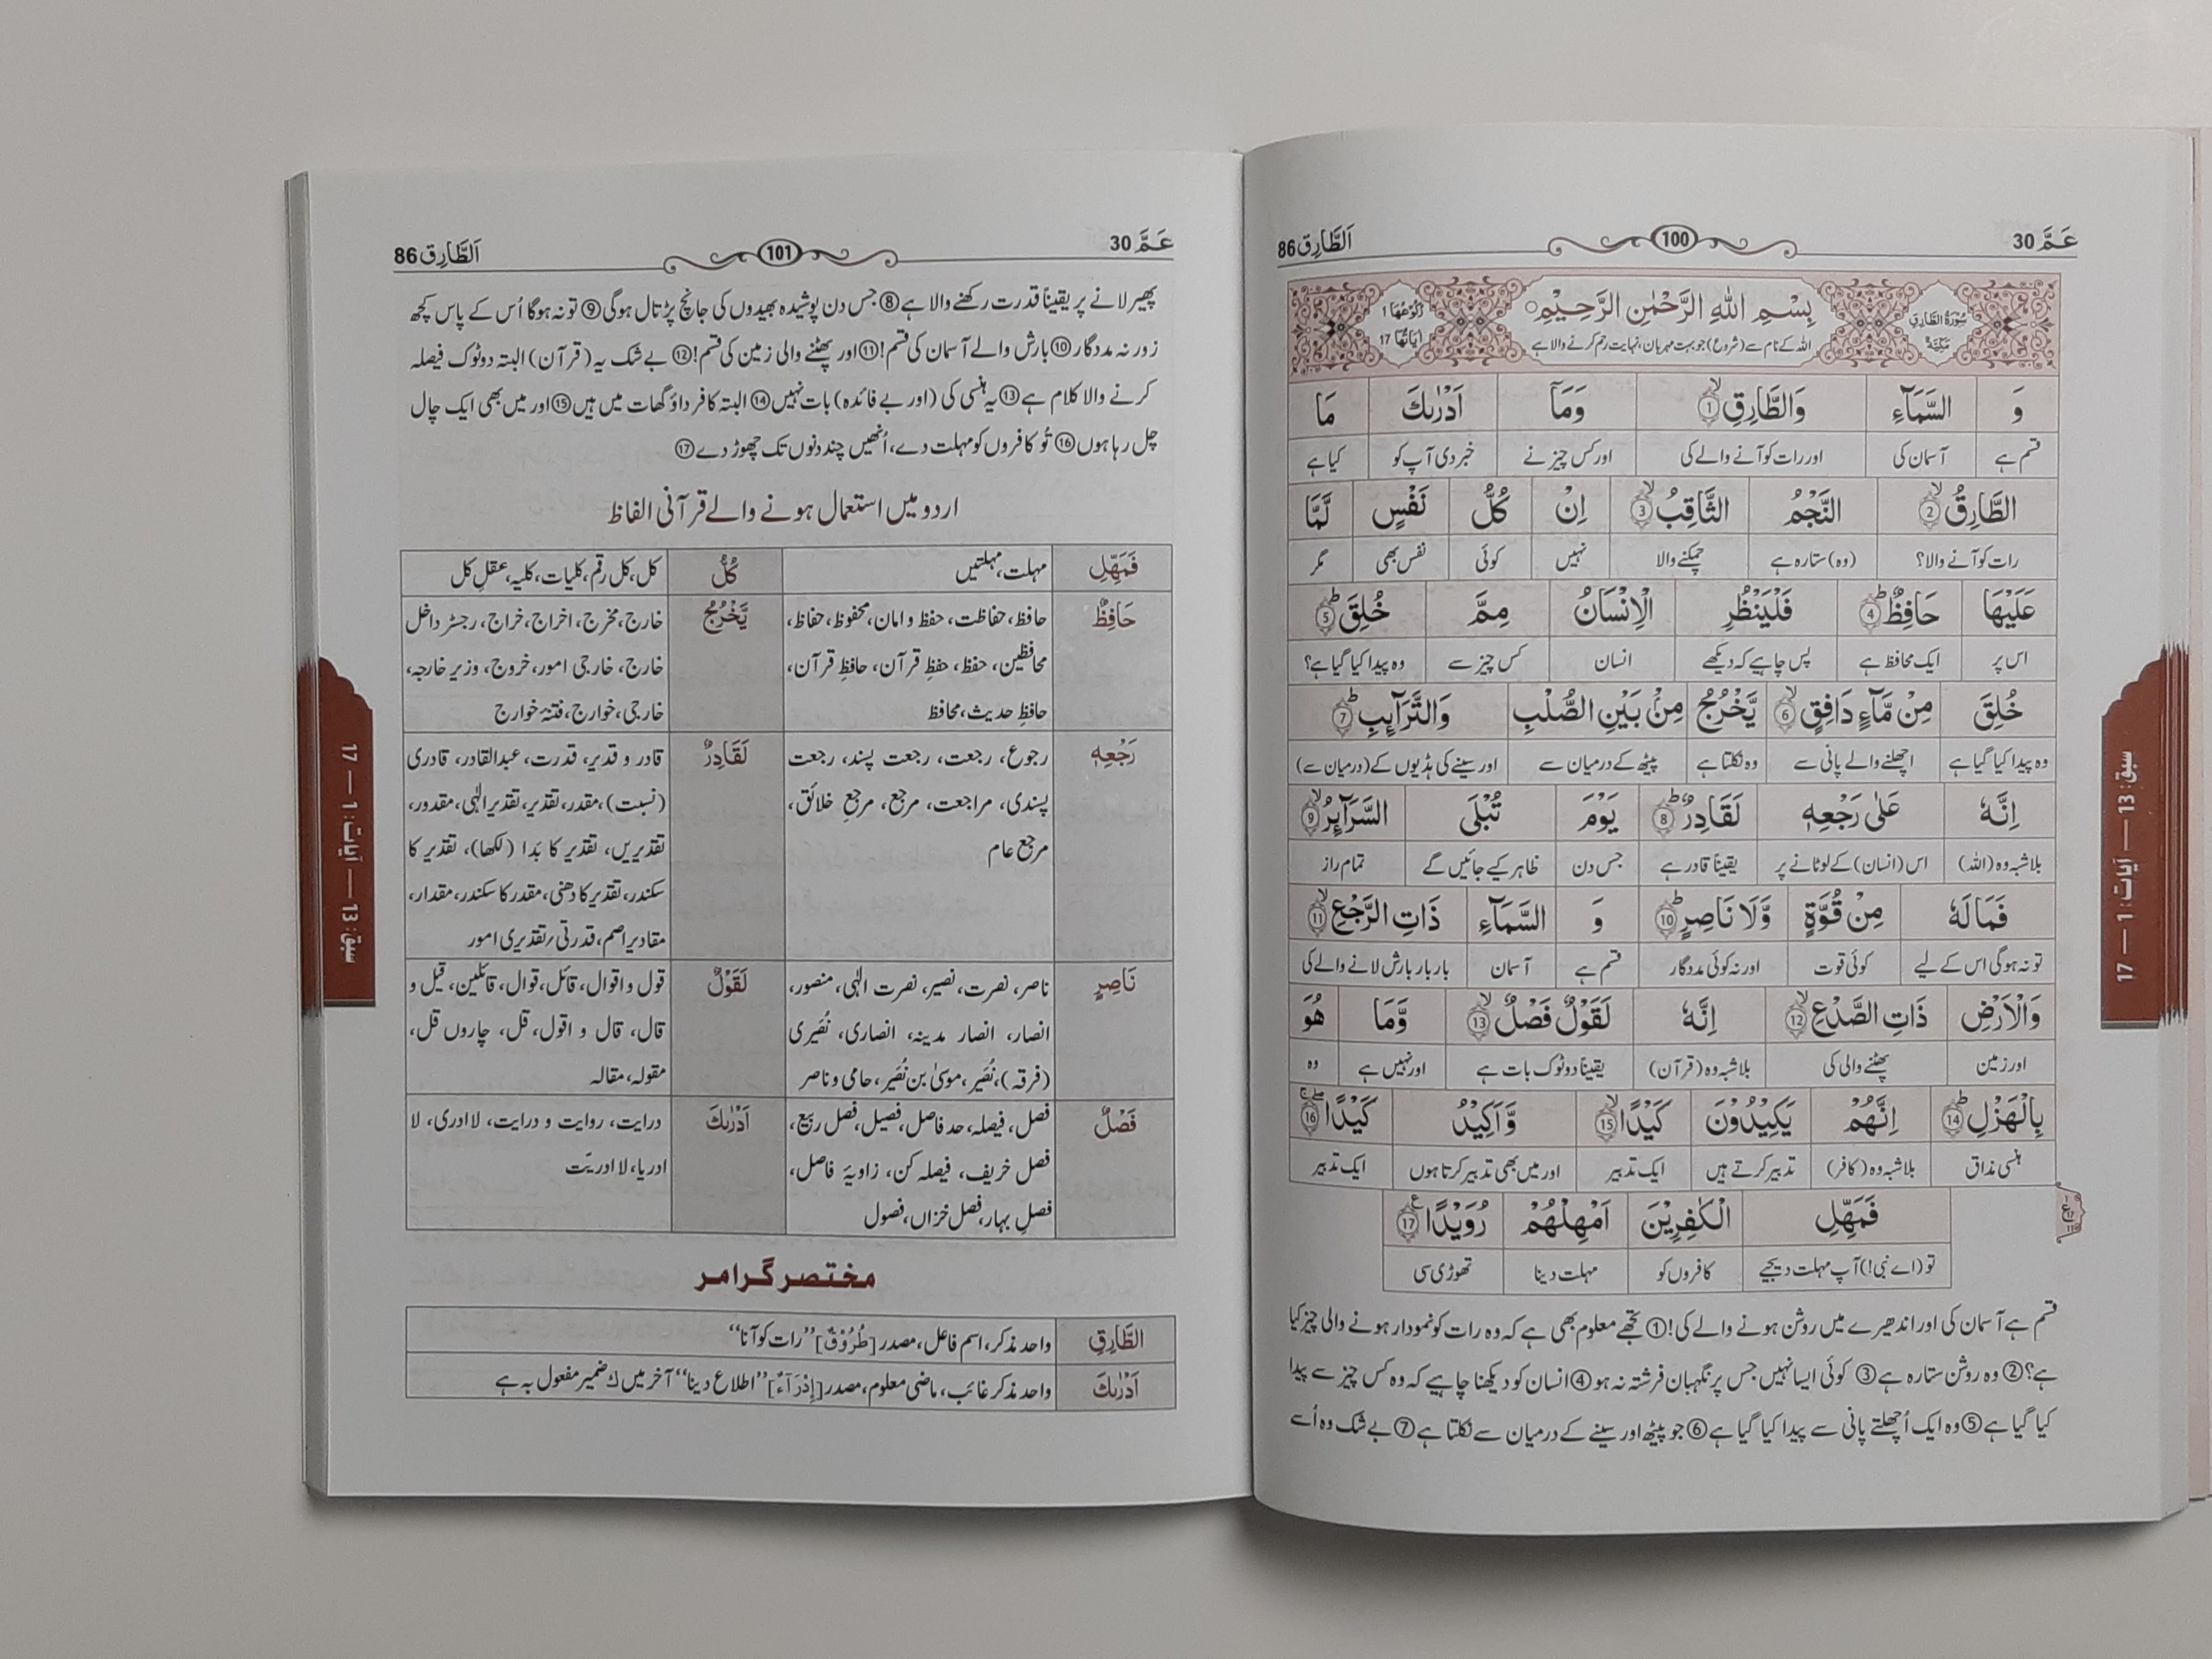 عَمَّ 30
100
اَلطَّارِق 86
سُوْرَةُ الطَّارِقِ مَكِّيَّةٌ
بِسْمِ اللّٰهِ الرَّحْمٰنِ الرَّحِيْمِ
رُكُوْعُهَا 1
اٰيَاتُهَا 17
اللہ کے نام سے (شروع) جو بہت مہربان، نہایت رحم کرنے والا ہے
وَ السَّمَآءِ وَالطَّارِقِ ① وَمَآ اَدْرٰىكَ مَا
قسم ہے آسمان کی اور رات کو آنے والے کی اور کس چیز نے خبر دی آپ کو کیا ہے
الطَّارِقُ ② النَّجْمُ الثَّاقِبُ ③ اِنْ كُلُّ نَفْسٍ لَّمَّا
رات کو آنے والا؟ (وہ) ستارہ ہے چمکنے والا نہیں کوئی نفس بھی مگر
عَلَيْهَا حَافِظٌ ④ فَلْيَنْظُرِ الْاِنْسَانُ مِمَّ خُلِقَ ⑤
اس پر ایک محافظ ہے پس چاہیے کہ دیکھے انسان کس چیز سے وہ پیدا کیا گیا ہے؟
خُلِقَ مِنْ مَّآءٍ دَافِقٍ ⑥ يَّخْرُجُ مِنْۢ بَيْنِ الصُّلْبِ وَالتَّرَآىِٕبِ ⑦
وہ پیدا کیا گیا ہے اچھلنے والے پانی سے وہ نکلتا ہے پیٹھ کے درمیان سے اور سینے کی ہڈیوں کے (درمیان سے)
اِنَّهٗ عَلٰى رَجْعِهٖ لَقَادِرٌ ⑧ يَوْمَ تُبْلَى السَّرَآىِٕرُ ⑨
بلاشبہ وہ (اللہ) اس (انسان) کے لوٹانے پر یقیناً قادر ہے جس دن ظاہر کیے جائیں گے تمام راز
فَمَا لَهٗ مِنْ قُوَّةٍ وَّلَا نَاصِرٍ ⑩ وَ السَّمَآءِ ذَاتِ الرَّجْعِ ⑪
تو نہ ہوگی اس کے لیے کوئی قوت اور نہ کوئی مددگار قسم ہے آسمان بار بار بارش لانے والے کی
وَالْاَرْضِ ذَاتِ الصَّدْعِ ⑫ اِنَّهٗ لَقَوْلٌ فَصْلٌ ⑬ وَّمَا هُوَ
اور زمین پھٹنے والی کی بلاشبہ وہ (قرآن) یقیناً دوٹوک بات ہے اور نہیں ہے وہ
بِالْهَزْلِ ⑭ اِنَّهُمْ يَكِيْدُوْنَ كَيْدًا ⑮ وَّاَكِيْدُ كَيْدًا ⑯
ہنسی مذاق بلاشبہ وہ (کافر) تدبیر کرتے ہیں ایک تدبیر اور میں بھی تدبیر کرتا ہوں ایک تدبیر
فَمَهِّلِ الْكٰفِرِيْنَ اَمْهِلْهُمْ رُوَيْدًا ⑰
تو (اے نبی!) آپ مہلت دیجیے کافروں کو مہلت دینا تھوڑی سی
قسم ہے آسمان کی اور اندھیرے میں روشن ہونے والے کی! ① تجھے معلوم بھی ہے کہ وہ رات کو نمودار ہونے والی چیز کیا
ہے؟ ② وہ روشن ستارہ ہے ③ کوئی ایسا نہیں جس پر نگہبان فرشتہ نہ ہو ④ انسان کو دیکھنا چاہیے کہ وہ کس چیز سے پیدا
کیا گیا ہے ⑤ وہ ایک اُچھلتے پانی سے پیدا کیا گیا ہے ⑥ جو پیٹھ اور سینے کے درمیان سے نکلتا ہے ⑦ بے شک وہ اُسے
سبق: 13 — آیات: 1 — 17
عَمَّ 30
101
اَلطَّارِق 86
پھیر لانے پر یقیناً قدرت رکھنے والا ہے ⑧ جس دن پوشیدہ بھیدوں کی جانچ پڑتال ہوگی ⑨ تو نہ ہوگا اُس کے پاس کچھ
زور نہ مددگار ⑩ بارش والے آسمان کی قسم! ⑪ اور پھٹنے والی زمین کی قسم! ⑫ بے شک یہ (قرآن) البتہ دوٹوک فیصلہ
کرنے والا کلام ہے ⑬ یہ ہنسی کی (اور بے فائدہ) بات نہیں ⑭ البتہ کافر داؤ گھات میں ہیں ⑮ اور میں بھی ایک چال
چل رہا ہوں ⑯ تُو کافروں کو مہلت دے، اُنھیں چند دنوں تک چھوڑ دے ⑰
اردو میں استعمال ہونے والے قرآنی الفاظ
فَمَهِّلِ مہلت، مہلتیں
كُلُّ کل، کل رقم، کلیات، کلیہ، عقلِ کل
حَافِظٌ حافظ، حفاظت، حفظ و امان، محفوظ، حفاظ،
محافظین، حفظ، حفظِ قرآن، حافظِ قرآن،
حافظِ حدیث، محافظ
يَّخْرُجُ خارج، مخرج، اخراج، خراج، رجسٹر داخل
خارج، خارجی امور، خروج، وزیر خارجہ،
خارجی، خوارج، فتنۂ خوارج
رَجْعِهٖ رجوع، رجعت، رجعت پسند، رجعت
پسندی، مراجعت، مرجع، مرجعِ خلائق،
مرجع عام
لَقَادِرٌ قادر و قدیر، قدرت، عبدالقادر، قادری
(نسبت)، مقدر، تقدیر، تقدیر الٰہی، مقدور،
تقدیریں، تقدیر کا بَدا (لکھا)، تقدیر کا
سکندر، تقدیر کا دھنی، مقدر کا سکندر، مقدار،
مقادیر اصم، قدرتی/تقدیری امور
نَاصِرٍ ناصر، نصرت، نصیر، نصرت الٰہی، منصور،
انصار، انصار مدینہ، انصاری، نُصَیری
(فرقہ)، نُصَیر، موسیٰ بن نُصَیر، حامی و ناصر
لَقَوْلٌ قول و اقوال، قائل، قوال، قائلین، قیل و
قال، قال و اقول، قل، چاروں قل،
مقولہ، مقالہ
فَصْلٌ فصل، فیصلہ، حد فاصل، فصیل، فصل ربیع،
فصل خریف، فیصلہ کن، زاویۂ فاصل،
فصلِ بہار، فصل خزاں، فصول
اَدْرٰىكَ درایت، روایت و درایت، لا ادری، لا
ادریا، لا ادریّت
مختصر گرامر
الطَّارِقِ واحد مذکر، اسم فاعل، مصدر [طُرُوْقٌ] ”رات کو آنا“
اَدْرٰىكَ واحد مذکر غائب، ماضی معلوم، مصدر [اِدْرَآءٌ] ”اطلاع دینا“ آخر میں ك ضمیر مفعول بہ ہے
سبق: 13 — آیات: 1 — 17